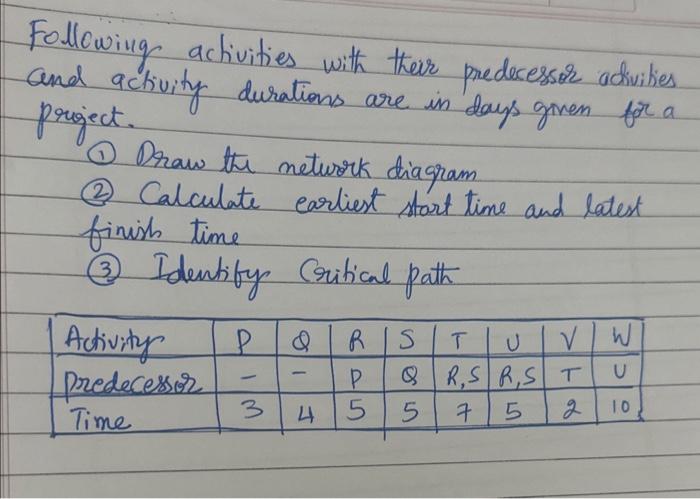 Following activities with their predecessor activities
and activity durations are in days given for a
project.
① Draw the network diagram
② Calculate earliest start time and latest
finish time
③ Identify Critical path
Activity P Q R S T U V W
Predecessor - - P Q R,S R,S T U
Time 3 4 5 5 7 5 2 10